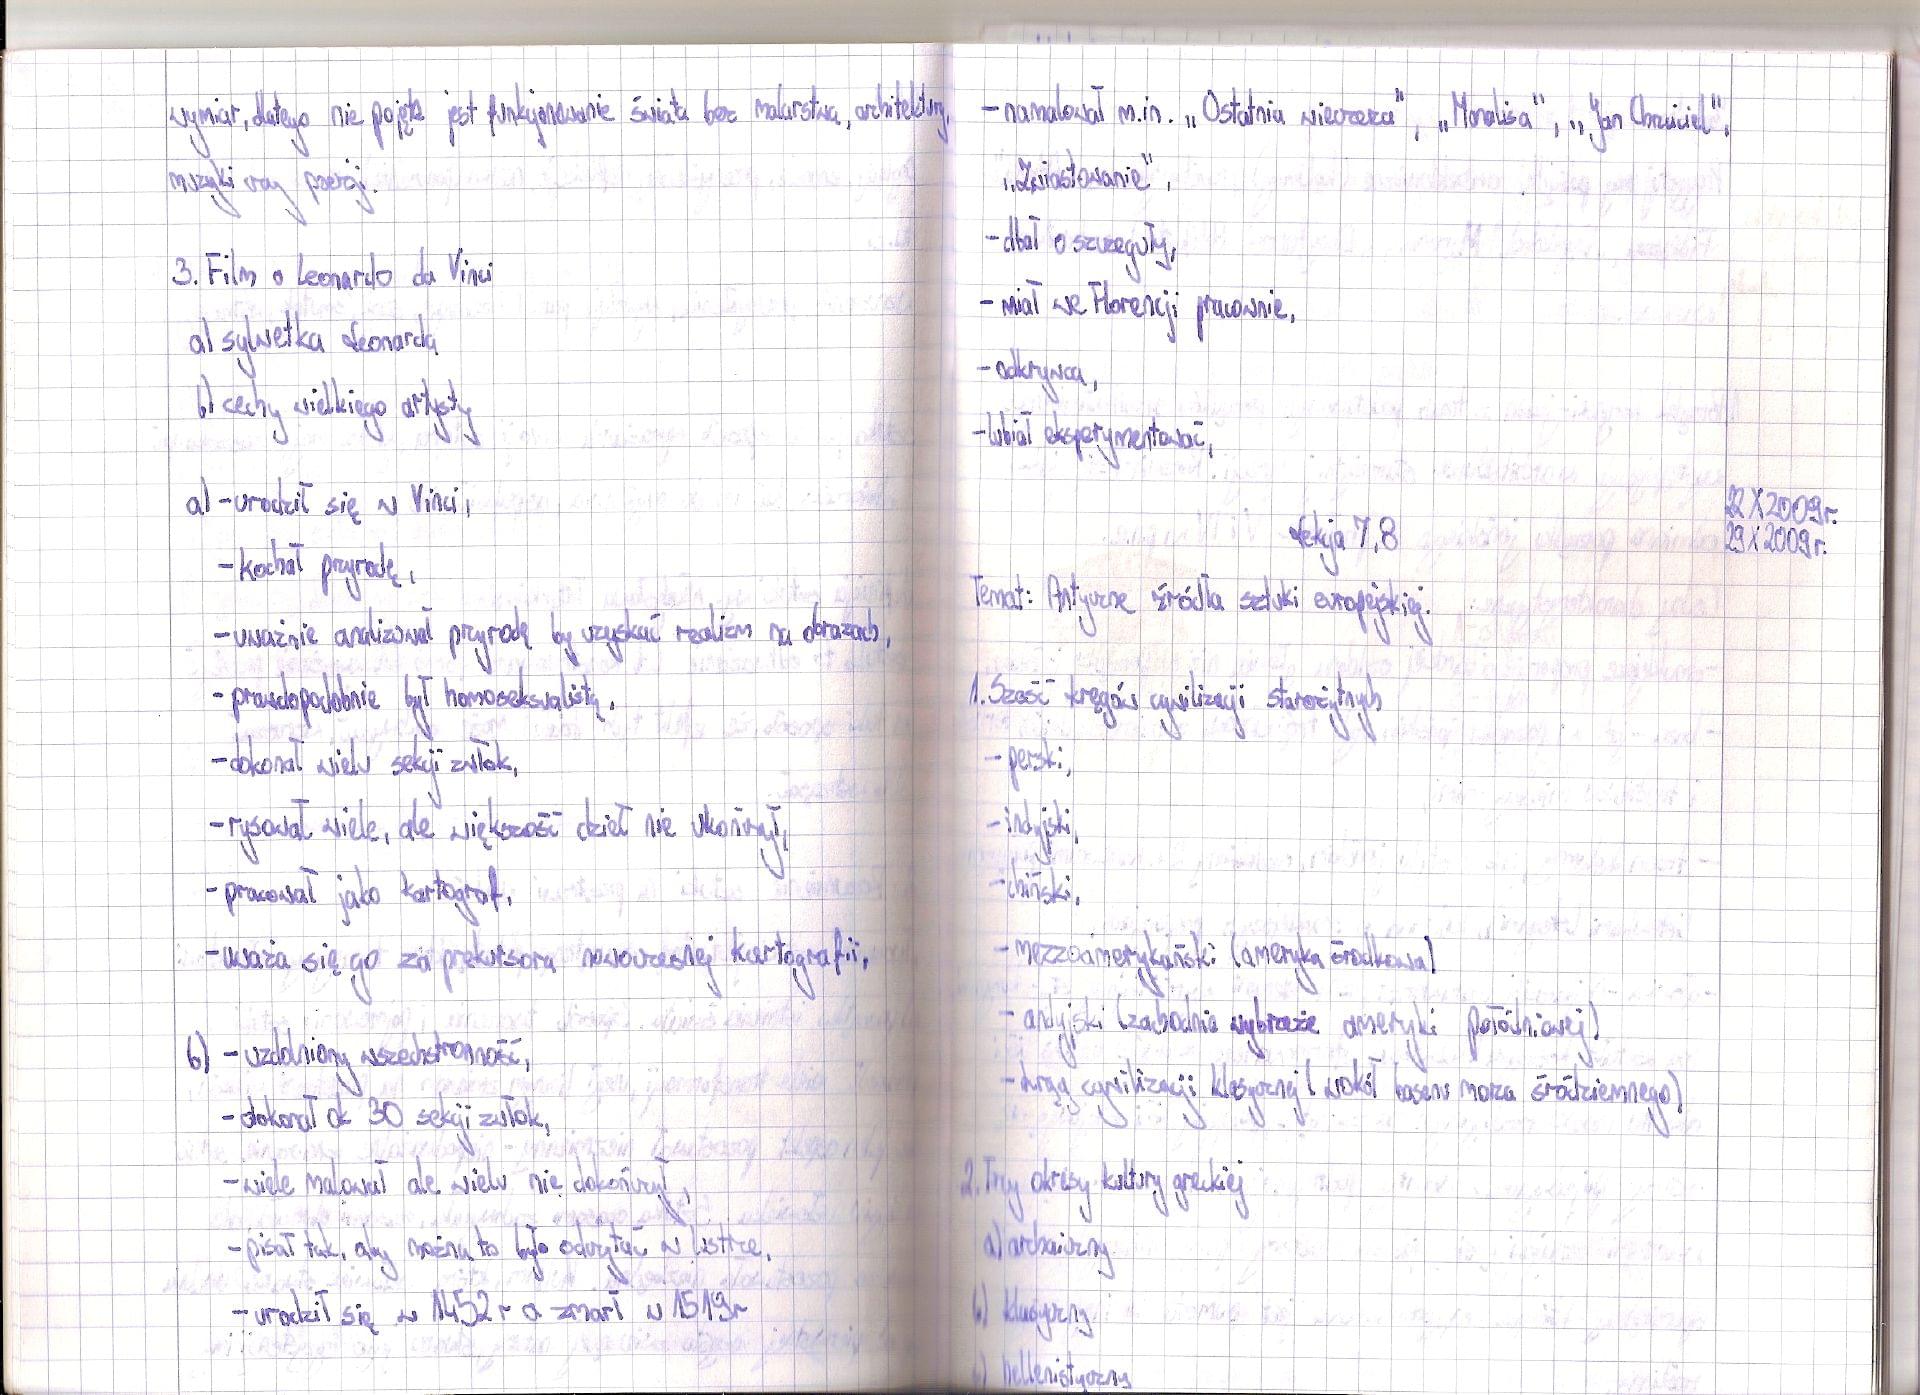 wymiar, dlatego nie pojęte jest funkcjonowanie świata bez malarstwa, architektury,
muzyki czy poezji.
3. Film o Leonardo da Vinci
a) sylwetka Leonarda
b) cechy wielkiego artysty
a) - urodził się w Vinci,
- kochał przyrodę,
- uważnie analizował przyrodę by uzyskać realizm na obrazach,
- prawdopodobnie był homoseksualistą,
- dokonał wielu sekcji zwłok,
- rysował wiele, ale większość dzieł nie ukończył,
- pracował jako kartograf,
- uważa się go za prekursora nowoczesnej kartografii,
b) - uzdolniony wszechstronność,
- dokonał ok 30 sekcji zwłok,
- wiele malował ale wielu nie dokończył,
- pisał tak, aby można to było odczytać w lustrze,
- urodził się w 1452 r a zmarł w 1519r
- namalował m.in. „Ostatnia wieczeza", „Monalisa", „Jan Chrzciciel",
„Zwiastowanie",
- dbał o szczeguły,
- miał we Florencji pracownie,
- odkrywca,
- lubiał eksperymentować,
22 X 2009r.
Lekcja 7,8
29 X 2009r.
Temat: Antyczne źródła sztuki europejskiej.
1. Sześć kręgów cywilizacji starożytnych
- perski,
- indyjski,
- chiński,
- mezzoamerykański (ameryka środkowa)
- andyjski (zachodnie wybrzeże ameryki połódniowej)
- krąg cywilizacji klasycznej (wokół basenu morza śródziemnego)
2. Trzy okresy kultury greckiej
a) archaiczny
b) klasyczny
c) hellenistyczny